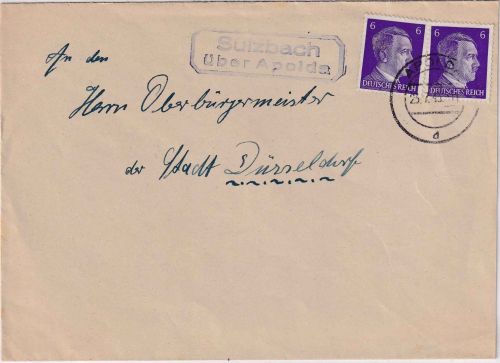 Sulzbach
über Apolda
6 6
DEUTSCHES REICH
6 6
DEUTSCHES REICH
APOLDA
d
An den
Herrn Oberbürgermeister
der Stadt Düsseldorf